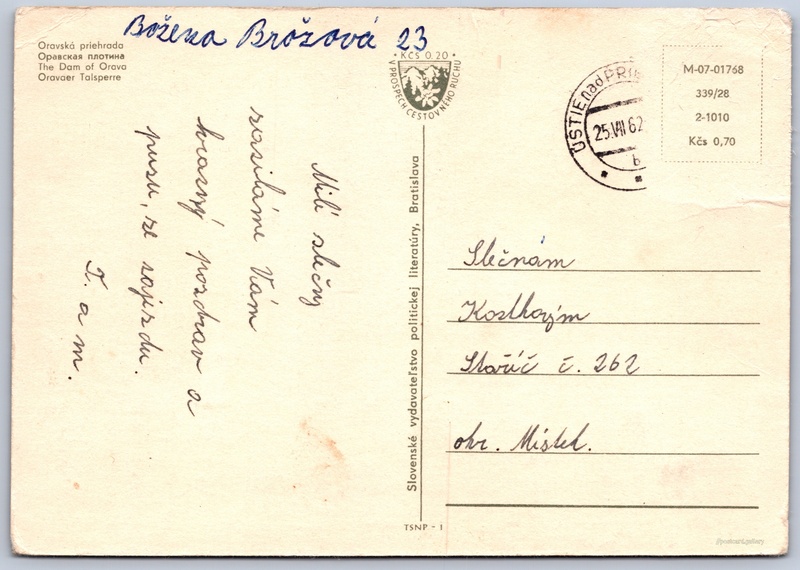 Božena Brožová 23
Oravská priehrada
Оравская плотина
The Dam of Orava
Oravaer Talsperre
Kčs 0.20
V PROSPECH CESTOVNÉHO RUCHU
Milé slečny
zasíláme Vám
krásný pozdrav a
pusu, ze zajezdu.
T. a m.
Slovenské vydavateľstvo politickej literatúry, Bratislava
TSNP - 1
USTIE nad PRI
25.VII 62
b
M-07-01768
339/28
2-1010
Kčs 0,70
Slečnám
Stařič č. 262
okr. Místek.